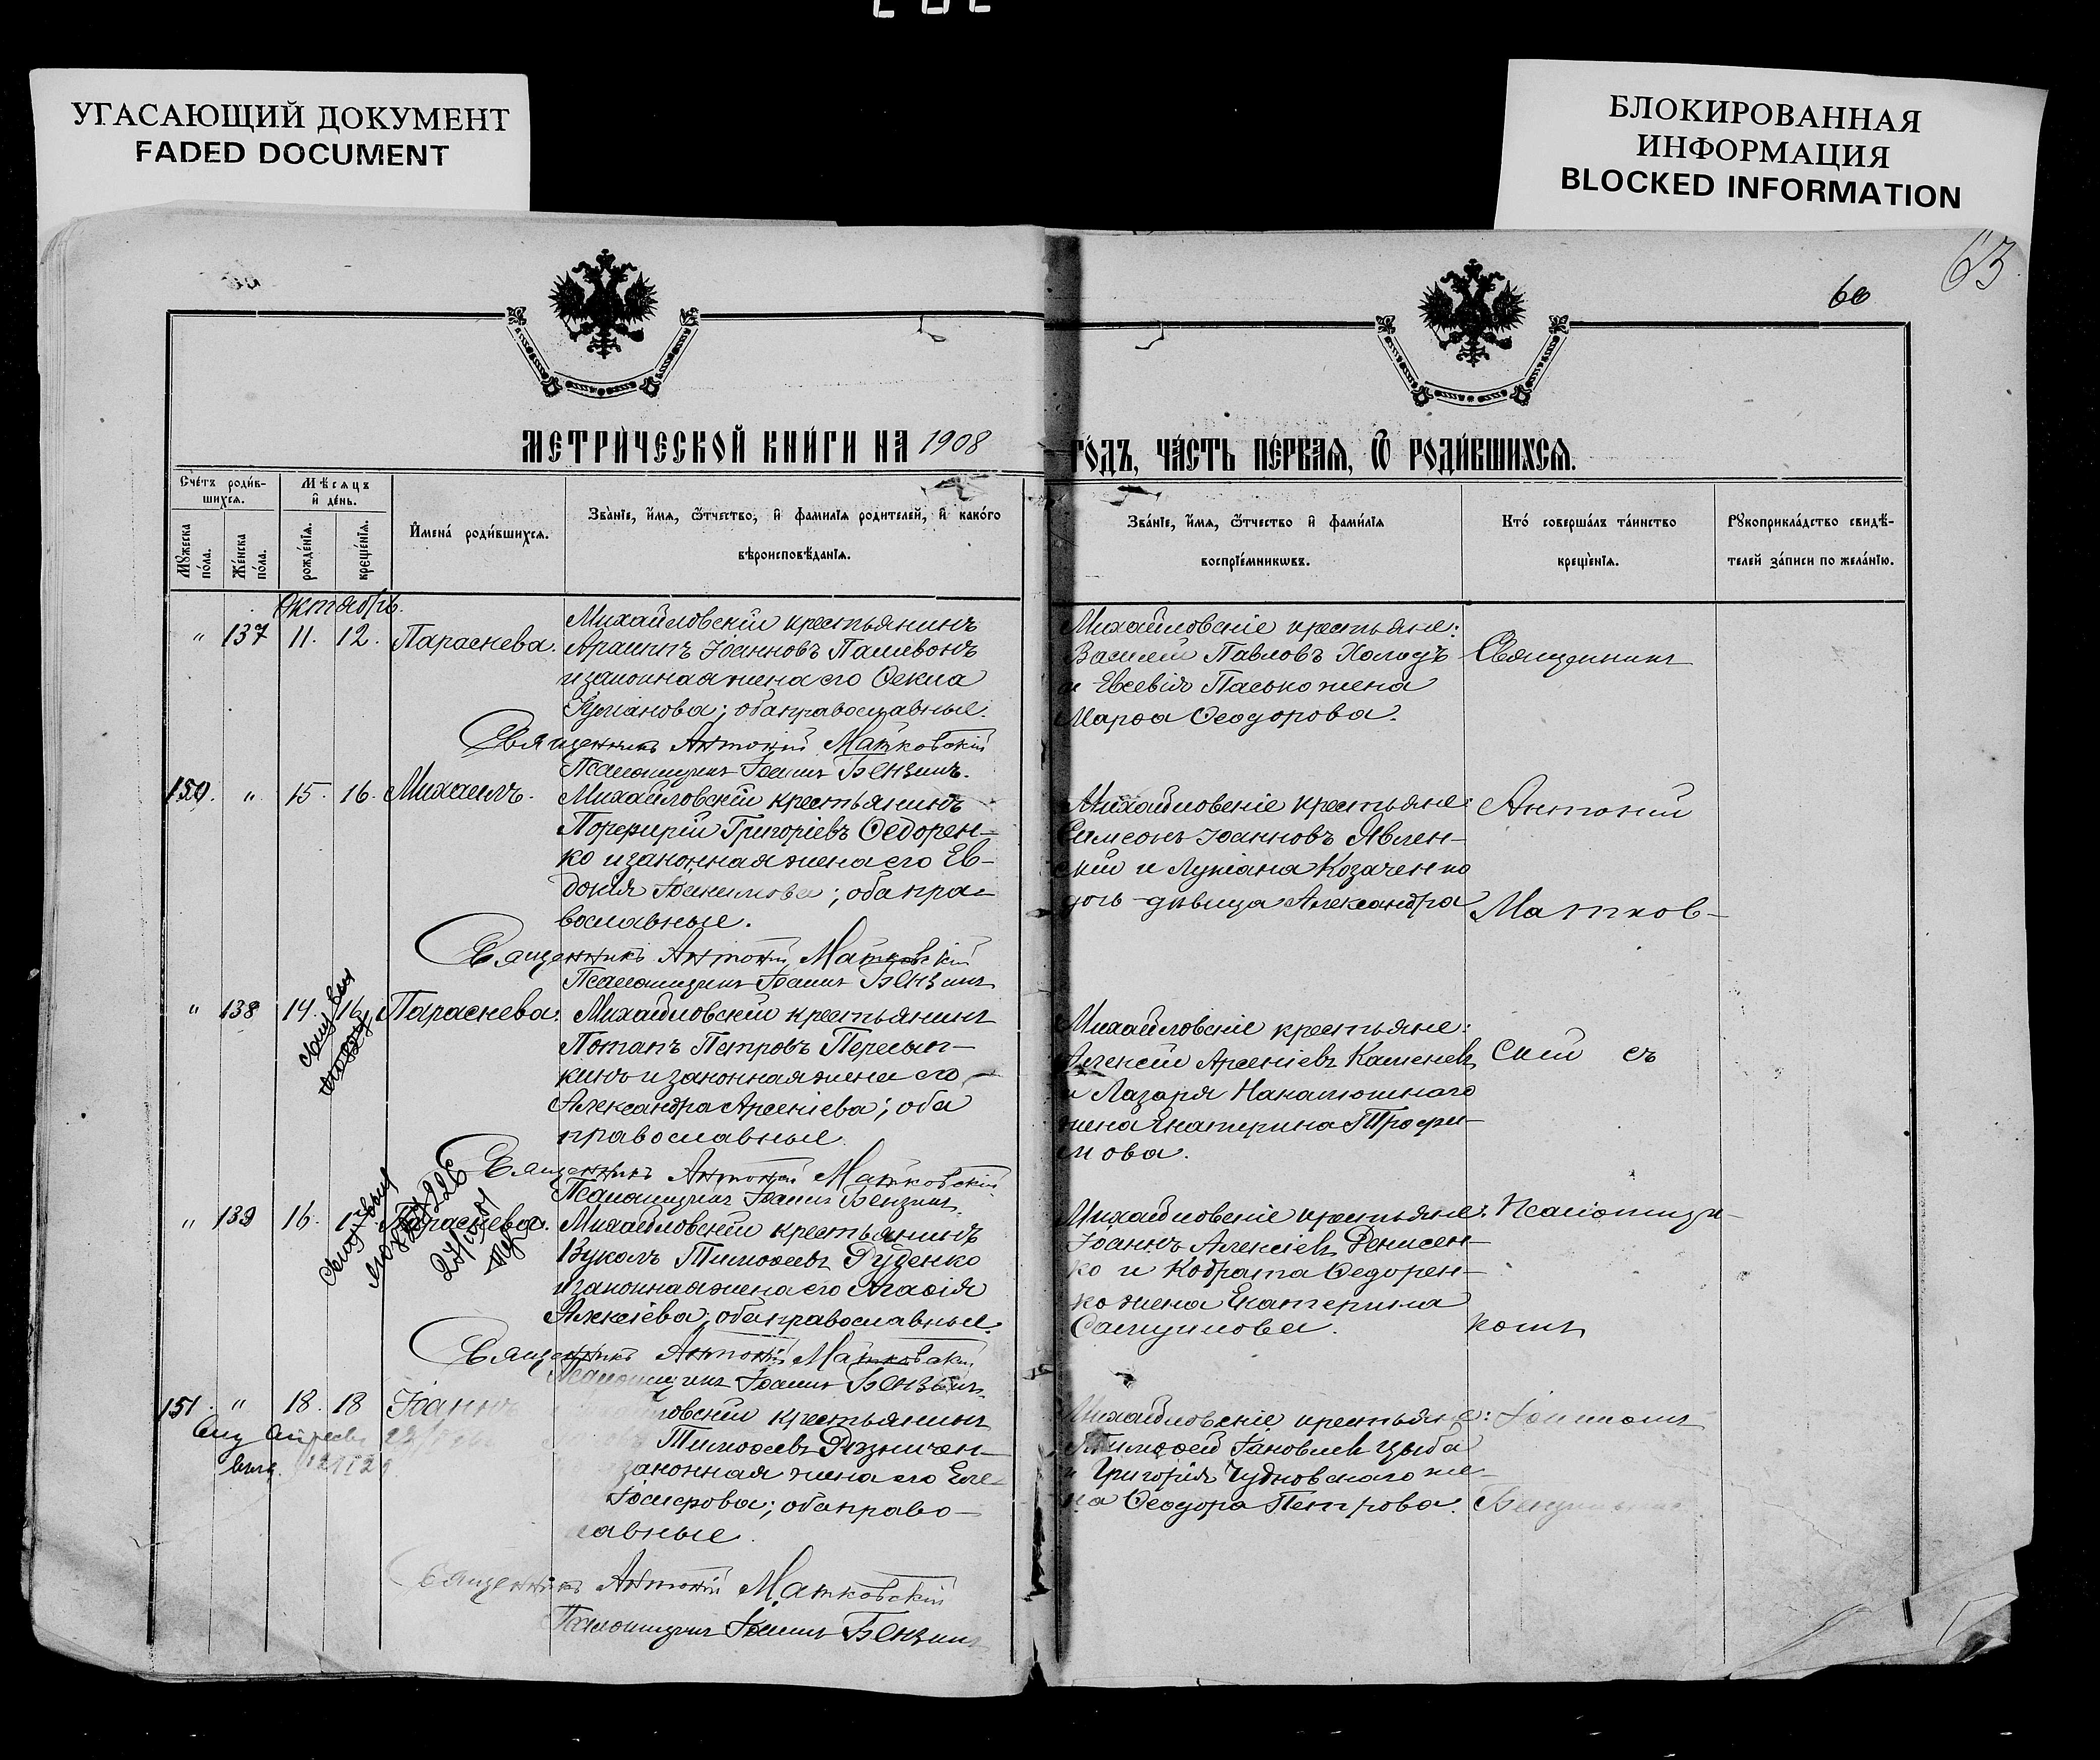 УГАСАЮЩИЙ ДОКУМЕНТ
FADED DOCUMENT
БЛОКИРОВАННАЯ
ИНФОРМАЦИЯ
BLOCKED INFORMATION
63
60
МЕТРИЧЕСКОЙ КНИГИ НА 1908
ГОДЪ, ЧАСТЬ ПЕРВАЯ, Ѿ РОДИВШИХСЯ.
Счетъ родив-
шихся.
Мѣсяцъ
и день.
Мꙋжеска пола.
Женска пола.
рожденїя.
крещенїя.
Имена родившихся.
Званїе, имя, ѿчество, и фамилїя родителей, и какого
вѣроисповѣданїя.
Званїе, имя, ѿчество и фамилїя
воспрїемникѡвъ.
Кто совершалъ таинство
крещенїя.
Рꙋкоприкладство свидѣ-
телей записи по желанїю.
Октябрь.
" 137 11. 12. Параскева.
Михайловскій крестьянинъ
Іоанновъ
и законная жена его Ѳекла
; оба православные.
Священникъ Антоній Матковскій
Псаломщикъ Іоаннъ Бензинъ.
Михайловскіе крестьяне:
Василій Павловъ Холодъ
и Евсевія Пасько жена
Марѳа Ѳеодорова.
Священникъ
150. " 15. 16. Михаилъ.
Михайловскій крестьянинъ
Порфирій Григоріевъ Ѳедорен-
ко и законная жена его Ев-
докія ; оба пра-
вославные.
Священникъ Антоній Матковскій
Псаломщикъ Іоаннъ Бензинъ
Михайловскіе крестьяне:
Симеонъ Іоанновъ Явлен-
скій и Лукіана Козаченко
дочь - дѣвица Александра
Антоній
Матков-
" 138 14. 16. Параскева.
Михайловскій крестьянинъ
Потапъ Петровъ Пересып-
кинъ и законная жена его
Александра Арсеніева; оба
православные.
Священникъ Антоній Матковскій
Псаломщикъ Іоаннъ Бензинъ.
Михайловскіе крестьяне:
Алексій Арсеніевъ
и Лазаря
жена Екатерина Трофи-
мова.
скій съ
" 139 16. 17. Параскева.
Михайловскій крестьянинъ
Вуколъ Тимоѳеевъ Руденко
и законная жена его Агафія
Алексіева; оба православные.
Священникъ Антоній Матковскій
Псаломщикъ Іоаннъ Бензинъ.
Михайловскіе крестьяне:
Іоаннъ Алексіевъ Денисен-
ко и Кодрата Ѳедорен-
ко жена Екатерина
Самуилова.
Псаломщи-
комъ
151. " 18. 18 Іоаннъ
крестьянинъ
Тимоѳеевъ
законная жена его Еле-
Іосифова; оба право-
славные.
Священникъ Антоній Матковскій
Псаломщикъ Іоаннъ Бензинъ
Михайловскіе крестьяне:
Тимоѳей Іаковлевъ Цыба
и Григорія Чудновскаго же-
на Ѳеодора Петрова.
Іоанномъ